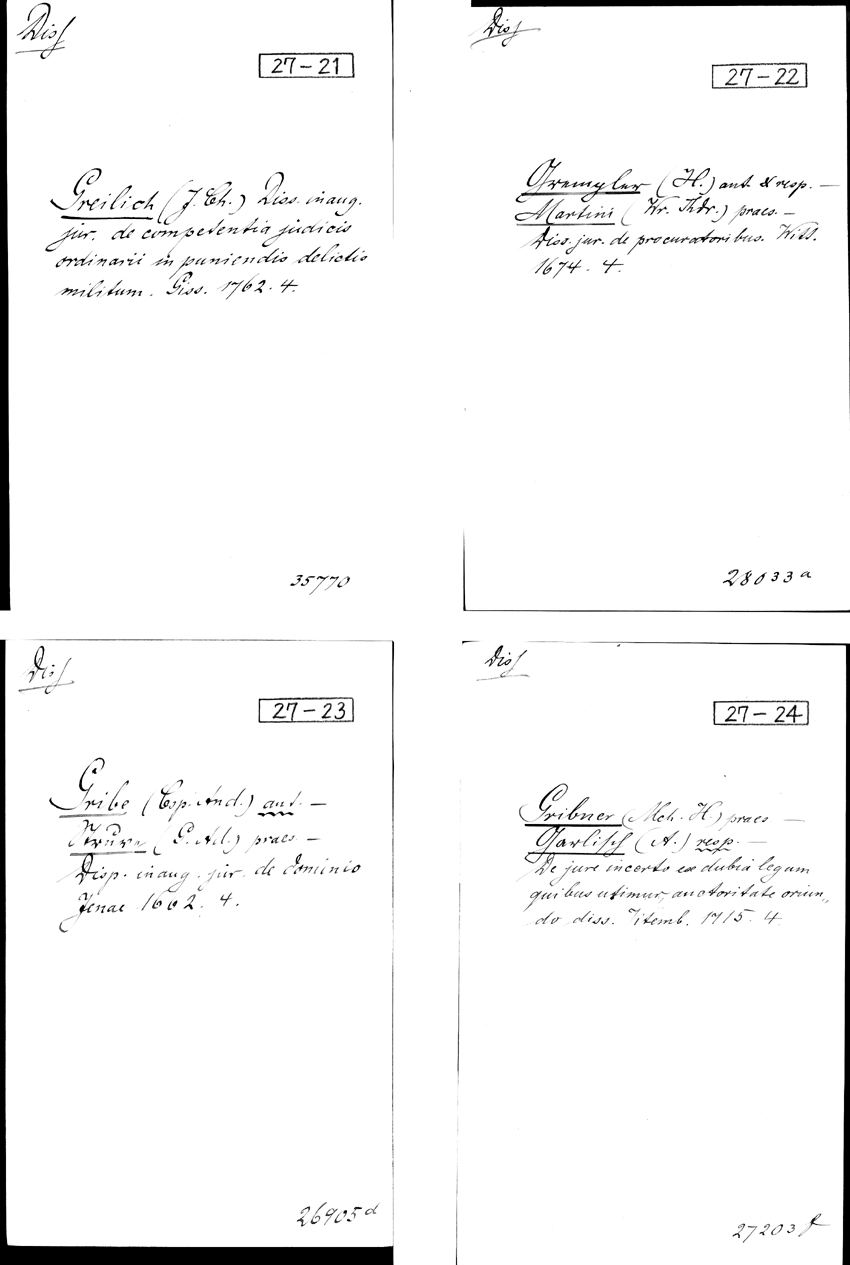 Diss
27-21
Greilich (J. Ch.) Diss. inaug.
jur. de competentia judicis
ordinarii in puniendis delictis
militum. Giss. 1762. 4.
35770
Diss
27-22
Grempler (H.) aut. & resp. —
Martini (Wr. Thdr.) praes. —
Diss. jur. de procuratoribus. Witt.
1674. 4.
28033 a
Diss
27-23
Gribe (Csp. And.) aut. —
Struve (G. Ad.) praes. —
Disp. inaug. jur. de dominio
Jenae 1662. 4.
26905 d
Diss
27-24
Gribner (Mch. H.) praes —
Garlisch (A.) resp. —
De jure incerto ex dubia legum
quibus utimur, auctoritate oriun„
do diss. Vitemb. 1715. 4.
27203 f